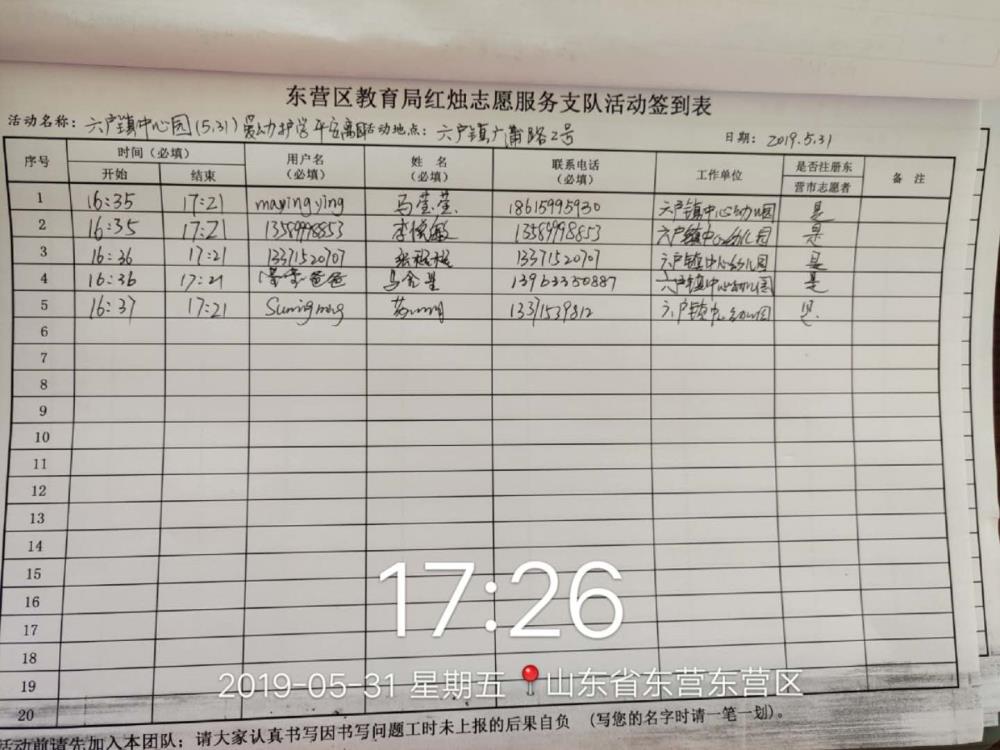 东营区教育局红烛志愿服务支队活动签到表
活动名称：六户镇中心园(5.31)爱心护学平安离园 活动地点：六户镇广蒲路2号 日期：2019.5.31
序号 时间（必填） 用户名（必填） 姓名（必填） 联系电话（必填） 工作单位 是否注册东营市志愿者 备注
开始 结束
1 16:35 17:21 mayingying 马莹莹 18615995930 六户镇中心幼儿园 是
2 16:35 17:21 13589998853 李俊敏 13589998853 六户镇中心幼儿园 是
3 16:36 17:21 13371520707 张 13371520707 六户镇中心幼儿园 是
4 16:36 17:21 爸爸 马金星 13963350887 六户镇中心幼儿园 是
5 16:37 17:21 苏 13371539812 六户镇中心幼儿园 是
6
7
8
9
10
11
12
13
14
15
16
17
18
19
20
17:26
2019-05-31 星期五 山东省东营东营区
活动前请先加入本团队；请大家认真书写因书写问题工时未上报的后果自负 （写您的名字时请一笔一划）。